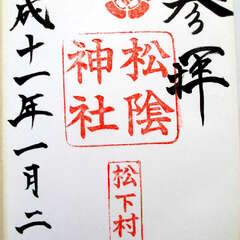 参拝
松陰
神社
松下村
成十一年一月二